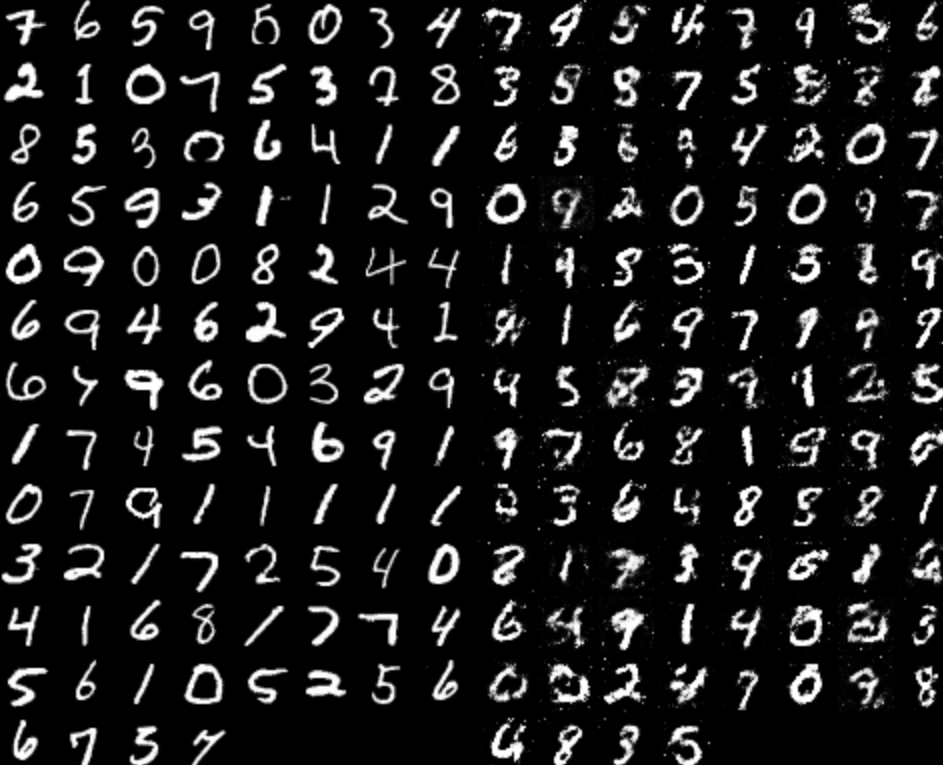 7 6 5 9 5 0 3 4 7 9 5 4 7 9 5 6
2 1 0 7 5 3 7 8 3 8 7 5 8
8 5 3 0 6 4 1 1 6 3 6 4 2 0 7
6 5 9 3 1 1 2 9 0 9 2 0 5 0 9 7
0 9 0 0 8 2 4 4 1 9 8 3 1 5 9
6 9 4 6 2 9 4 1 1 6 9 7 9 9 9
6 7 9 6 0 3 2 9 9 5 3 9 1 2 5
1 7 4 5 4 6 9 1 9 7 6 8 1 9 9
0 7 9 1 1 1 1 1 3 6 4 8 8 8 1
3 2 1 7 2 5 4 0 8 1 7 3 9 6 8
4 1 6 8 1 7 7 4 6 4 9 1 4 0 3
5 6 1 0 5 2 5 6 0 0 2 7 0 7 8
6 7 5 7 4 8 3 5